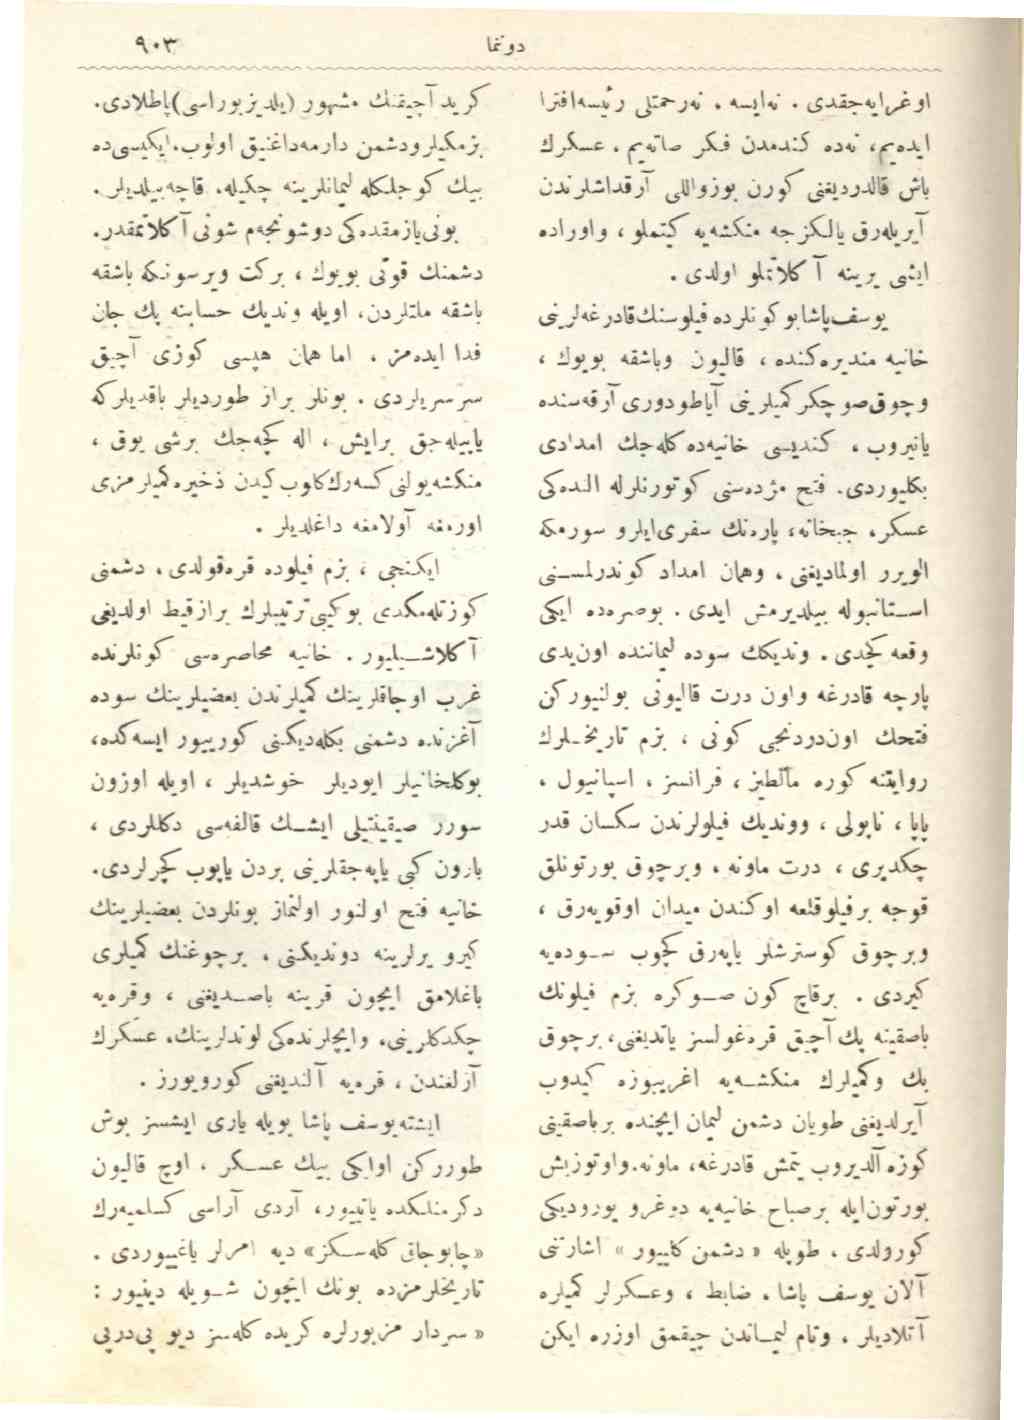 دوننما
٩٠٣
اوغرایه‌جقدی . نه‌ایسه ، نه‌رحمتلی رئیسه‌افترا
ایده‌یم، نه‌ده کندمدن فکر صاته‌یم . عسکرك
باش قالدردیغنی کورن بوزواللی آرقداشلرندن
آیریله‌رق یالکزجه منکشه‌یه کیتملو ، واوراده
ایشی یرینه آکلاتملو اولدی .
یوسف‌پاشابوکونلرده فیلوسنك‌قادرغه‌لرینی
خانیه مندیره‌کنده ، قالیون وباشقه بویوك ،
وچوق‌صوچکرکمیلرینی آیاطودوری آرقه‌سنده
یاتیروب ، کندیسی خانیه‌ده کله‌جك امدادی
بکلیوردی. فتح مژده‌سنی کوتورنلرله النده‌کی
عسکر، جبخانه، پاره‌نك سفری‌ایلرو سورمکه
الویرر اولمادیغنی ، وهمان امداد کوندرلمسنی
استانبوله بیلدیرمش ایدی . بوصره‌ده ایکی
وقعه کچدی . وندیکك سوده لیماننده اون‌یدی
پارچه قادرغه واون درت قالیونی بولنیورکن
فتحك اون‌دردنجی کونی ، بزم تاریخلرك
روایتنه کوره مالطیز ، فرانسز ، اسپانیول ،
پاپا ، ناپولی ، ووندیك فیلولرندن سکسان قدر
چکدیری ، درت ماونه ، وبرچوق بورتونلق
قوجه برفیلوقلعه اوکندن میدان اوقویه‌رق ،
وبرچوق کوسترشلر یاپه‌رق کچوب سوده‌یه
کیردی . برقاچ کون صوکره بزم فیلونك
باصقینه پك آچیق قره‌غولسز یاتدیغنی، برچوق
بك وکمیلرك منکشه‌یه اغریبوزه کیدوب
آیرلدیغنی طویان دشمن لیمان ایچنده برباصقینی
کوزه آلدیروب یتمش قادرغه، ماونه.واوتوزبش
بورتون‌ایله برصباح خانیه‌یه دوغرو یورودیکی
کورولدی . طوپله « دشمن کلییور » اشارتنی
آلان یوسف پاشا ، ضابط ، وعسکرلر کمیلره
آتلادیلر ، وتمام لیماندن چیقمق اوزره ایکن
کرید آچیقنك مشهور (یلدیزبوراسی)پاطلادی.
بزمکیلرودشمن دارمه‌داغنیق اولوب.ایکیسی‌ده
بیك کوجلکله لیمانلرینه چکیله‌، قاچه‌بیلدیلر .
بونی‌یازمقده‌کی دوشونجه‌م شونی آکلاتمقدر.
دشمنك قوتی بویوك ، برکت ویرسونکه باشقه
باشقه ملتلردن، اویله وندیك حسابنه پك جان
فدا ایده‌مز ، اما همان هپسی کوزی آچیق
سرسریلردی . بونلر براز طوردیلر باقدیلرکه
یاپیله‌جق برایش ، اله کچه‌جك برشی یوق ،
منکشه‌یولنی کسه‌رك‌کلوب کیدن ذخیره‌کمیلرمزی
اورمغه آولامغه داغلدیلر .
ایکنجی ، بزم فیلوده قره‌قولدی، دشمنی
کوزتله‌مکدی بوکبی‌ترتیبلرك برازقیط اولدیغی
آکلاشیلیور . خانیه محاصره‌سی کونلرنده
غرب اوجاقلرینك کمیلرندن بعضیلرینك سوده
آغزنده دشمنی بکله‌دیکنی کورییور ایسه‌کده،
بوکلخانیلر ایودیلر خوشدیلر ، اویله اوزون
سورر صیقینتیلی ایشك قالفه‌سی دکللردی ،
بارون کبی یاپه‌جقلرینی بردن یاپوب کچرلردی.
خانیه فتح اولنور اولنماز بونلردن بعضیلرینك
کیرو یرلرینه دوندیکنی ، برچوغنك کمیلری
باغلامق ایچون قرینه باصدیغنی ، وقره‌یه
چکدکلرینی، وایچلرنده‌کی لوندلرینك، عسکرك
آزلغندن ، قره‌یه آلندیغنی کورویورز .
ایشته‌یوسف پاشا بویله یاری ایشسز بوش
طوررکن اوایکی بیك عسکر ، اوچ قالیون
دکرمنلکده یاتییور، آردی آراسی کسلمیه‌رك
«چابوجاق کله‌سکز» دیه امرلر یاغییوردی .
تاریخلرمزده بونك ایچون شویله دینیور :
« سردار مزبورلره کریده کله‌سز دیو پی‌درپی